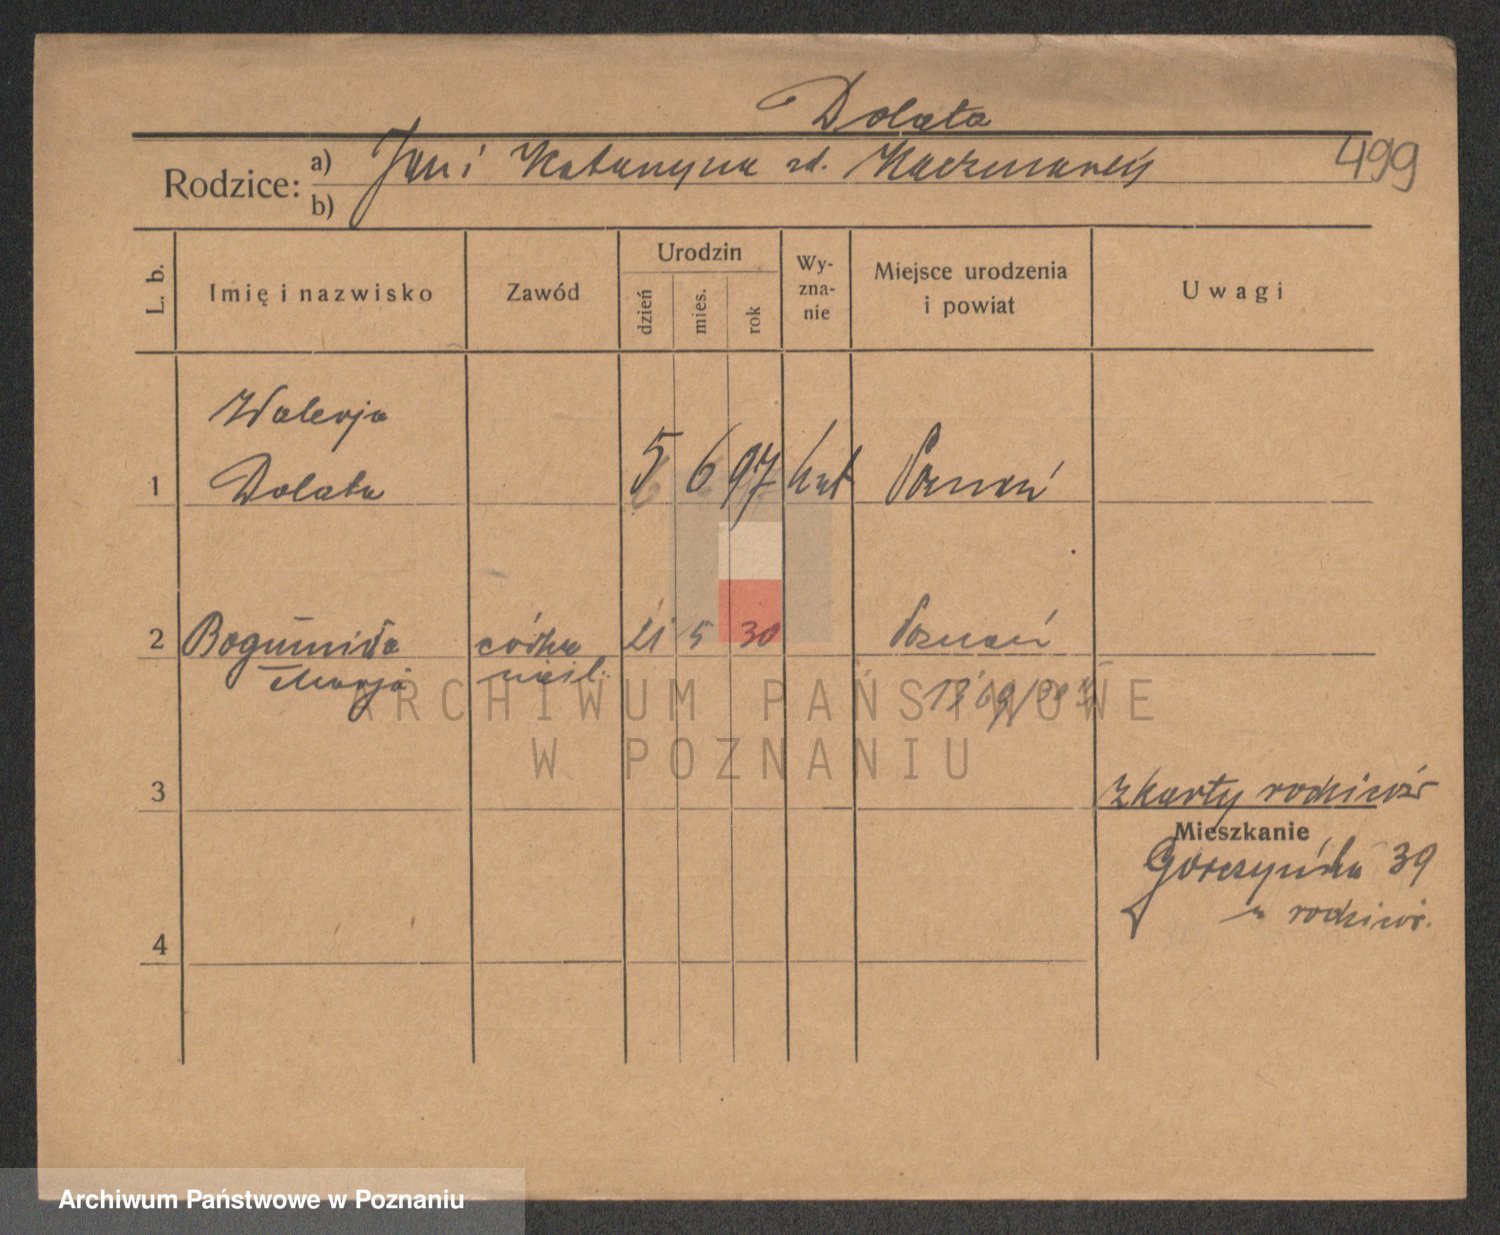 Dolata
Rodzice: a) Jan i Katarzyna zd. Kaczmarek 499
b)
L. b. Imię i nazwisko Zawód Urodzin dzień mies. rok Wy-zna-nie Miejsce urodzenia i powiat Uwagi
Walerja
1 Dolata 5 6 97 kat Poznań
2 Bogumiła córka 21 5 30 Poznań
Marja nieśl.
3 z karty rodziców
Mieszkanie
Górczyńska 39
u rodziców.
4
ARCHIWUM PAŃSTWOWE
W POZNANIU
Archiwum Państwowe w Poznaniu